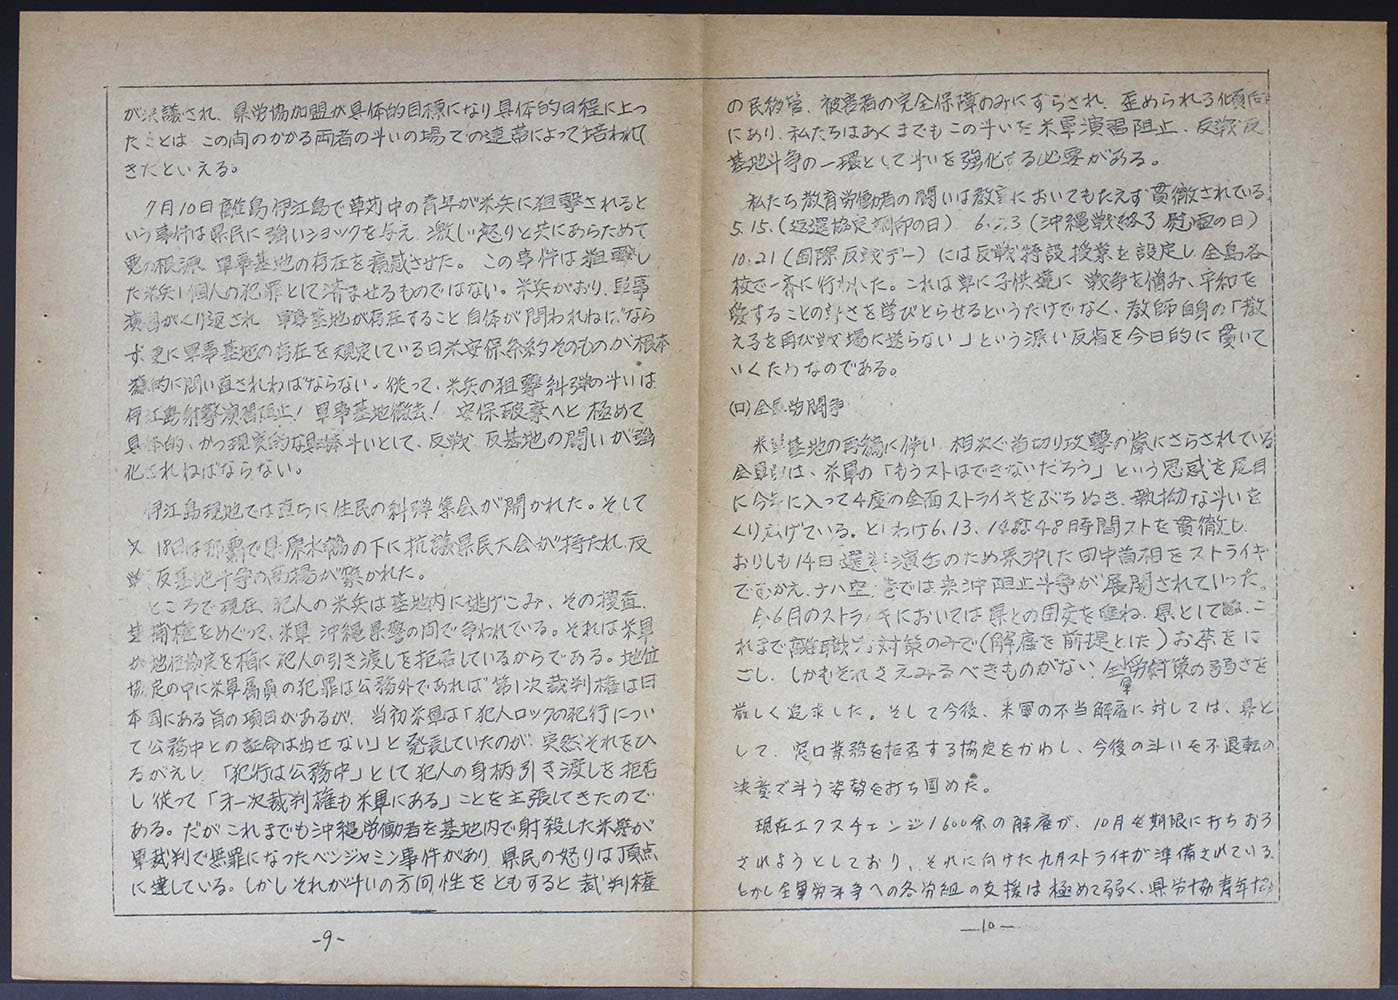 が決議され、県労協加盟が具体的目標になり具体的日程に上っ
たことは、この間のかかる両者の斗いの場での連帯によって培われて
きたといえる。
7月10日離島伊江島で草刈中の青年が米兵に狙撃されると
いう事件は県民に強いショックを与え、激しい怒りと共にあらためて
悪の根源、軍事基地の存在を痛感させた。この事件は狙撃し
た米兵1個人の犯罪として済ませるものではない。米兵がおり、軍事
演習がくり返され 軍事基地が存在すること自体が問われねばなら
ず更に軍事基地の存在を規定している日米安保条約そのものが根本
的に問い直されねばならない。従って、米兵の狙撃糾弾の斗いは
伊江島射撃演習阻止!軍事基地撤去!安保破棄へと極めて
具体的、かつ現実的な斗いとして、反戦、反基地の闘いが強
化されねばならない。
伊江島現地では直ちに住民の糾弾集会が開かれた。そして
又 18日は那覇で県原水協の下に抗議県民大会が持たれ、反
反基地斗争の高揚が築かれた。
ところで現在、犯人の米兵は基地内に逃げこみ、その捜査、
逮捕権をめぐって、米軍 沖縄県警の間で争われている。それは米軍
が地位協定を楯に犯人の引き渡しを拒否しているからである。地位
協定の中に米軍属員の犯罪は公務外であれば第1次裁判権は日
本国にある旨の項目があるが、当初米軍は「犯人ロックの犯行につい
て公務中との証命は出せない」と発表していたのが、突然それをひ
るがえし、「犯行は公務中」として犯人の身柄引き渡しを拒否
し従って「才一次裁判権も米軍にある」ことを主張してきたので
ある。だがこれまでも沖縄労働者を基地内で射殺した米兵が
軍裁判で無罪になったベンジャミン事件があり、県民の怒りは頂点
に達している。しかしそれが斗いの方向性をともすると裁判権
-9-
の民移管、被害者の完全保障のみにずらされ、歪められる傾向
にあり、私たちはあくまでもこの斗いを米軍演習阻止、反戦反
基地斗争の一環として斗いを強化する必要がある。
私たち教育労働者の闘いは教室においてもたえず貫徹されている。
5.15.(返還協定調印の日) 6.23(沖縄戦終了慰霊の日)
10.21(国際反戦デー)には反戦特設授業を設定し全島各
校で一斉に行われた。これは単に子供達に 戦争を憎み、平和を
愛することの尊さを学びとらせるというだけでなく、教師自身の「教
え子を再び戦場に送らない」という深い反省を今日的に貫いて
いくためなのである。
(ロ)全軍労闘争
米軍基地の再編に伴い 相次ぐ首切り攻撃の嵐にさらされている
全軍労は、米軍の「もうストはできないだろう」という思惑を尻目
に今年に入って4度の全面ストライキをぶちぬき、執拗な斗いを
くり広げている。とりわけ6.13、14は48時間ストを貫徹し、
おりしも14日選挙演舌のため来沖した田中首相をストライキ
でむかえ、ナハ空港では来沖阻止斗争が展開されていった。
今6月のストライキにおいては県との団交を重ね、県として、こ
れまで離職者対策のみで(解雇を前提とした)お茶をに
ごし、しかもそれさえみるべきものがない 全軍労対策の弱さを
厳しく追求した。そして今後、米軍の不当解雇に対しては、県と
して、窓口業務を拒否する協定をかわし、今後の斗いを不退転の
決意で斗う姿勢を打ち固めた。
現在エクスチェンジ1600余の解雇が、10月を期限に打ちおろ
されようとしており、それに向けた九月ストライキが準備されている。
しかし全軍労斗争への各労組の支援は極めて弱く、県労協青年協
-10-